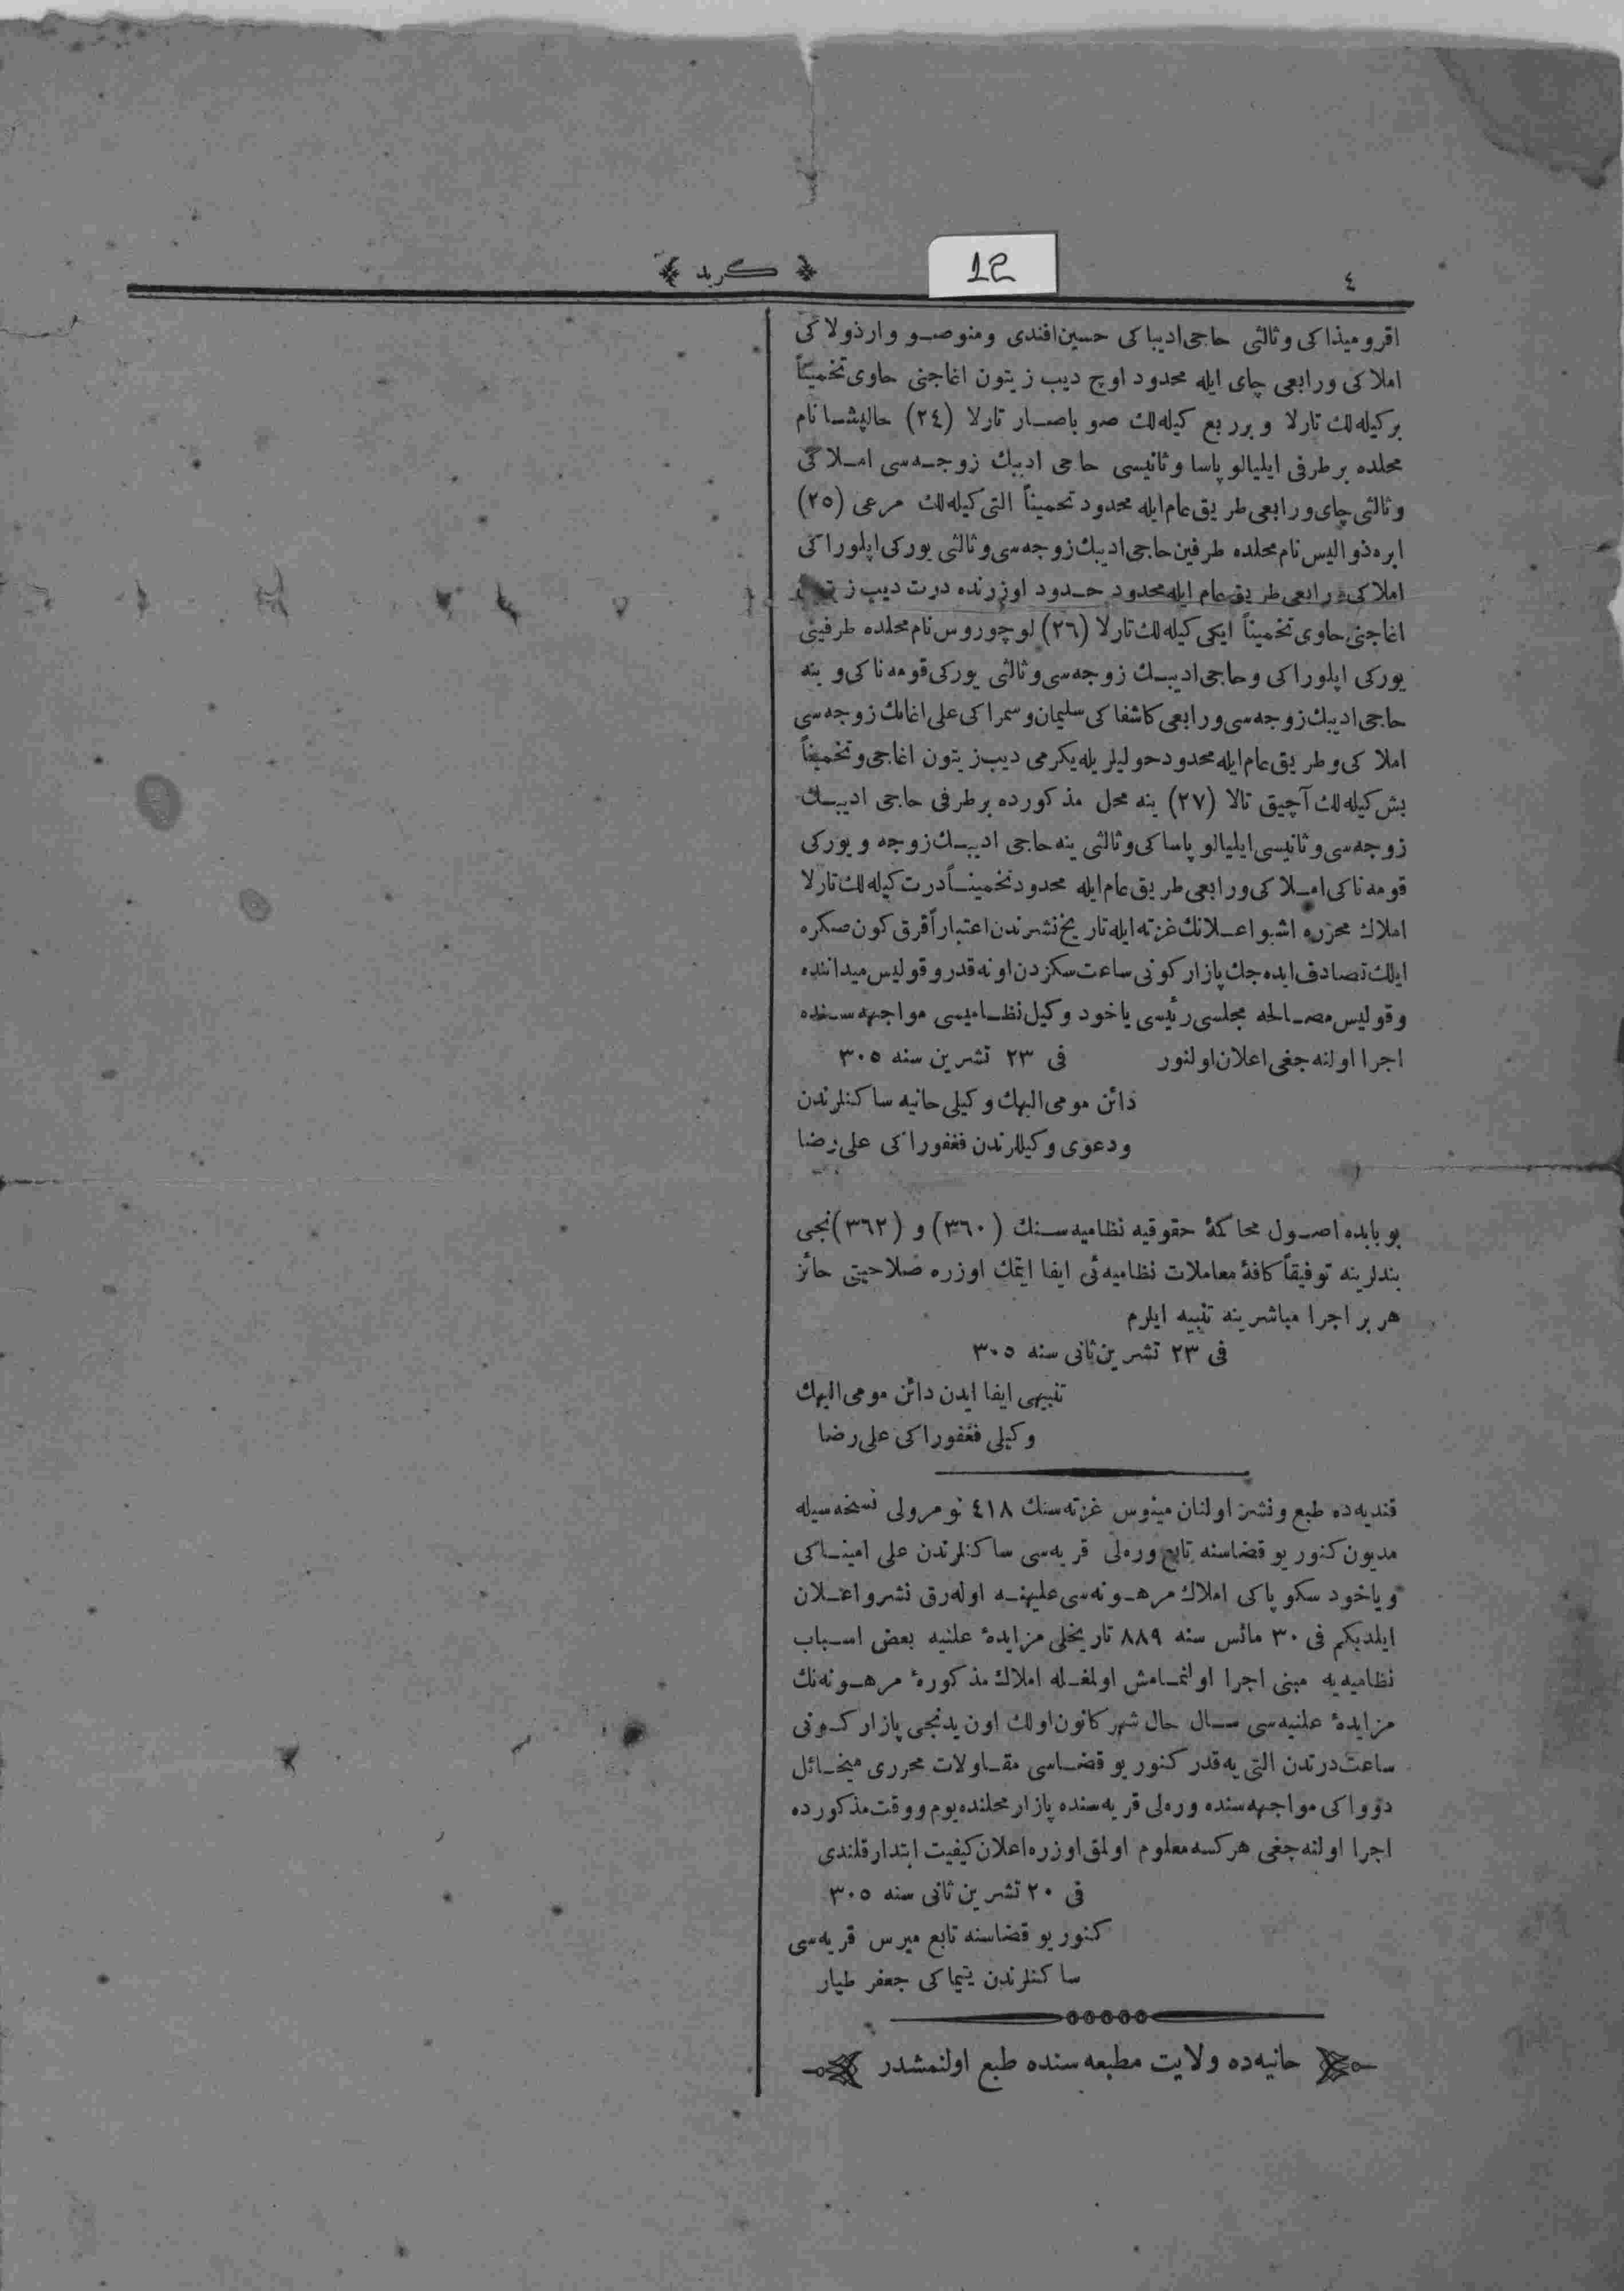 ٤
12
﴿ كريد ﴾
اقروميذاكی وثالثی حاجی اديباكی حسين افندی ومنوصو واردولاكی
املاكی ورابعی چای ايله محدود اوچ ديب زيتون اغاجنی حاوی تخميناً
بر كيله‌لك تارلا وبر ربع كيله‌لك صو باصار تارلا (٢٤) حاليشا نام
محلده بر طرفی ايليالو پاسا وثانيسی حاجی اديبك زوجه‌سی املاكی
وثالثی چای ورابعی طريق عام ايله محدود تخميناً التی كيله‌لك مرعی (٢٥)
ابره‌ذواليس نام محلده طرفين حاجی اديبك زوجه‌سی وثالثی يوركی اپلوراكی
املاكی ورابعی طريق عام ايله محدود حدود اوزرنده درت ديب
اغاجنی حاوی تخميناً ايكی كيله‌لك تارلا (٢٦) لوچوروس نام محلده طرفينی
يوركی اپلوراكی وحاجی اديبك زوجه‌سی وثالثی يوركی قومه‌ناكی و ينه
حاجی اديبك زوجه‌سی ورابعی كاشفاكی سليمان وسمراكی علی اغانك زوجه‌سی
املاكی وطريق عام ايله محدود حوليلريله يكرمی ديب زيتون اغاجی وتخميناً
بش كيله‌لك آچيق تالا (٢٧) ينه محل مذكورده بر طرفی حاجی اديبك
زوجه‌سی وثانيسی ايليالو پاساكی وثالثی ينه حاجی اديبك زوجه ويوركی
قومه‌ناكی املاكی ورابعی طريق عام ايله محدود تخميناً درت كيله‌لك تارلا
املاك محزره اشبو اعلانك غزته ايله تاريخ نشرندن اعتباراً قرق كون صكره
ايلك تصادف ايده‌جك پازار كونی ساعت سكزدن اونه قدر وقوليس ميداننده
وقوليس مصالحه مجلسی رئيسی ياخود وكيل نظاميسی مواجهه‌سنده
اجرا اولنه‌جغی اعلان اولنور فی ٢٣ تشرين سنه ٣٠٥
دائن مومی اليهك وكيلی حانيه ساكنلرندن
ودعوی وكيللرندن فغفوراكی علی رضا
بو بابده اصول محاكمهٔ حقوقيه نظاميه‌سنك (٣٦٠) و (٣٦٢) نجی
بندلرينه توفيقاً كافهٔ معاملات نظاميه‌ئی ايفا ايتمك اوزره صلاحيتی حائز
هر بر اجرا مباشرينه تنبيه ايلرم
فی ٢٣ تشرين ثانی سنه ٣٠٥
تنبيهی ايفا ايدن دائن مومی اليهك
وكيلی فغفوراكی علی رضا
قنديه‌ده طبع ونشر اولنان مينوس غزته‌سنك ٤١٨ نومرولی نسخه‌سيله
مديون كنوريو قضاسنه تابع وره‌لی قريه‌سی ساكنلرندن علی اميناكی
وياخود سكوپاكی املاك مرهونه‌سی عليهنه اوله‌رق نشر واعلان
ايلديكم فی ٣٠ مائس سنه ٨٨٩ تاريخلی مزايدهٔ علنيه بعض اسباب
نظاميه‌يه مبنی اجرا اولنمامش اولمغله املاك مذكورهٔ مرهونه‌نك
مزايدهٔ علنيه‌سی سال حال شهر كانون اولك اون يدنجی پازار كونی
ساعت درتدن التی‌يه قدر كنوريو قضاسی مقاولات محرری ميخائل
دوواكی مواجهه‌سنده وره‌لی قريه‌سنده پازار محلنده يوم ووقت مذكورده
اجرا اولنه‌جغی هركسه معلوم اولمق اوزره اعلان كيفيت ابتدار قلندی
فی ٢٠ تشرين ثانی سنه ٣٠٥
كنوريو قضاسنه تابع ميرس قريه‌سی
ساكنلرندن يتيماكی جعفر طيار
حانيه‌ده ولايت مطبعه‌سنده طبع اولنمشدر